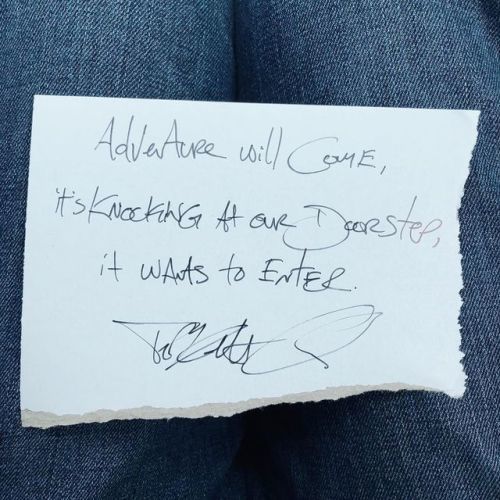 Adventure will Come,
it's Knocking At our Doorstep,
it wants to Enter.